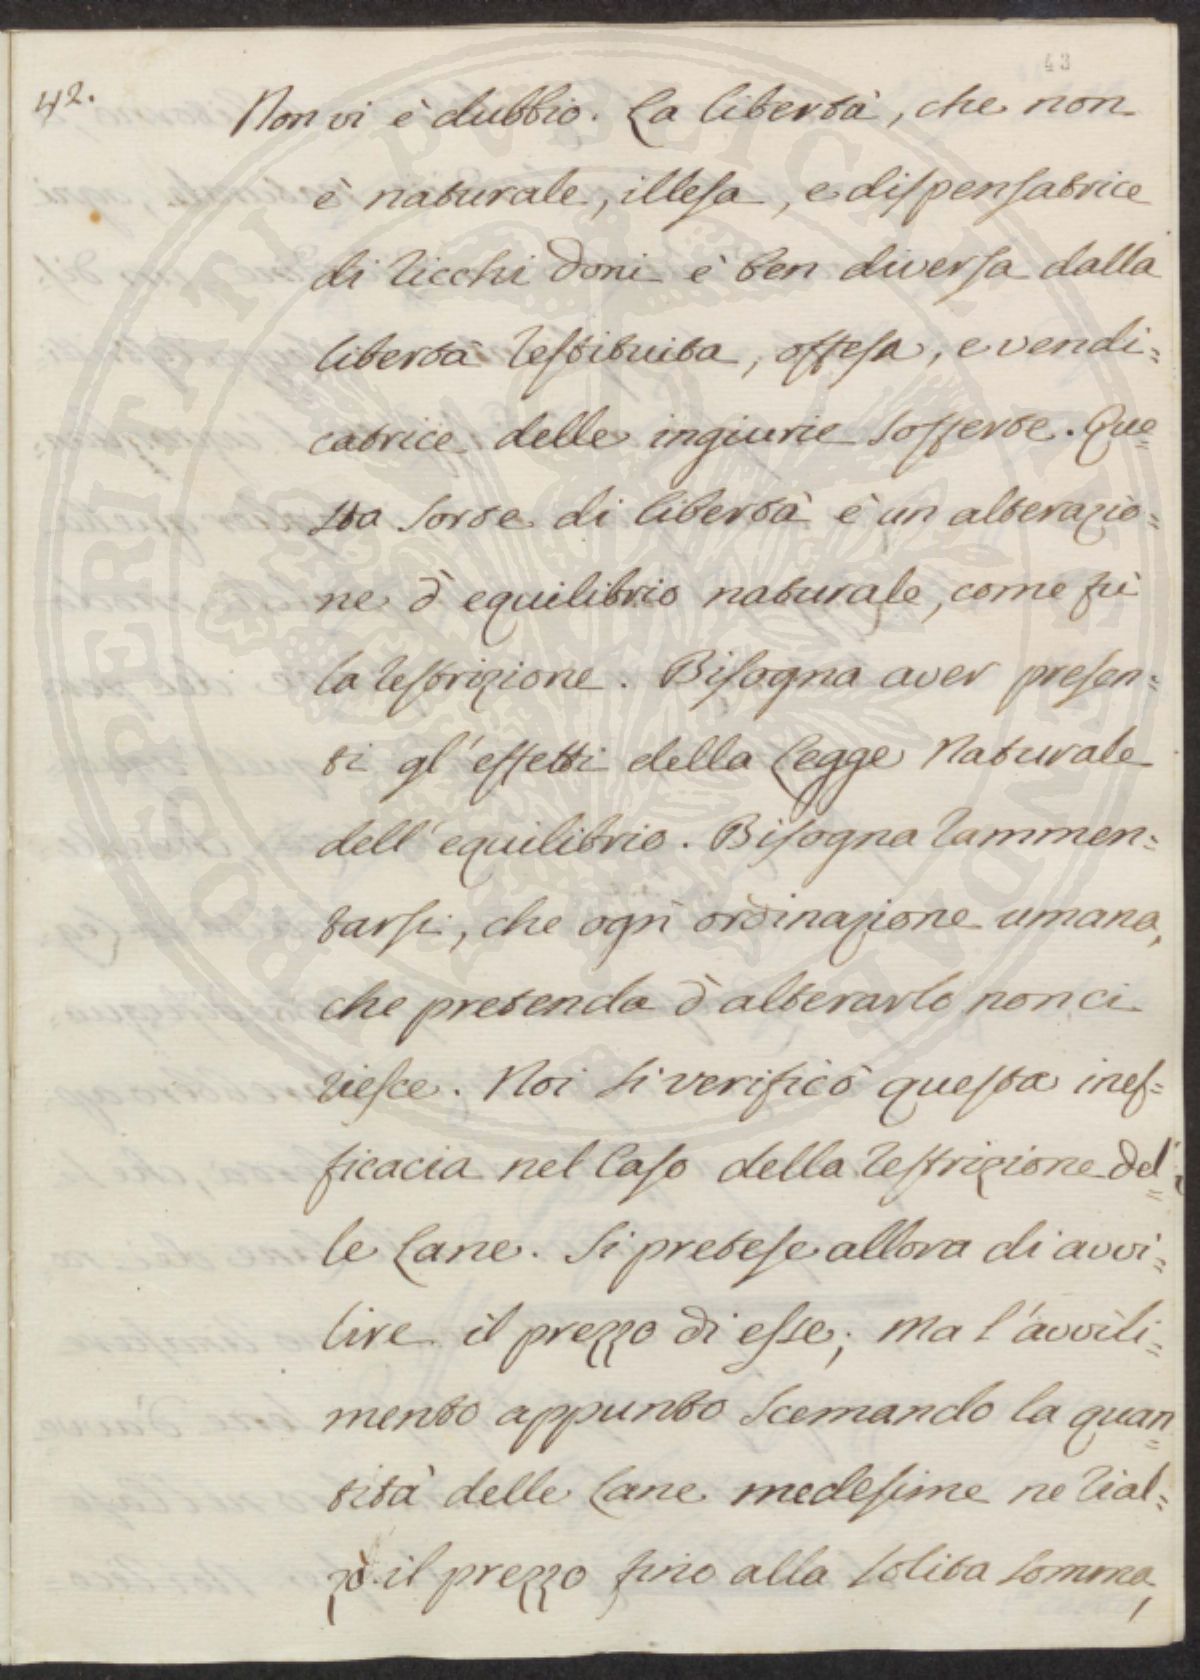 43
42.
Non vi è dubbio. La libertà, che non
è naturale, illesa, e dispensatrice
di ricchi doni è ben diversa dalla
libertà restituita, offesa, e vendi=
catrice delle ingiurie sofferte. Que=
sta sorte di libertà è un alterazio=
ne d'equilibrio naturale, come fù
la restrizione. Bisogna aver presen=
ti gl'effetti della Legge Naturale
dell'equilibrio. Bisogna rammen=
tarsi, che ogni ordinazione umana,
che pretenda d'alterarlo non ci
riesce. Noi si verificò questa inef=
ficacia nel Caso della restrizione del=
le Lane. Si pretese allora di avvi=
lire il prezzo di esse; ma l'avvili=
mento appunto scemando la quan=
tità delle Lane medesime ne rial=
zò il prezzo fino alla solita somma,
PROSPERITATI PVBLICAE